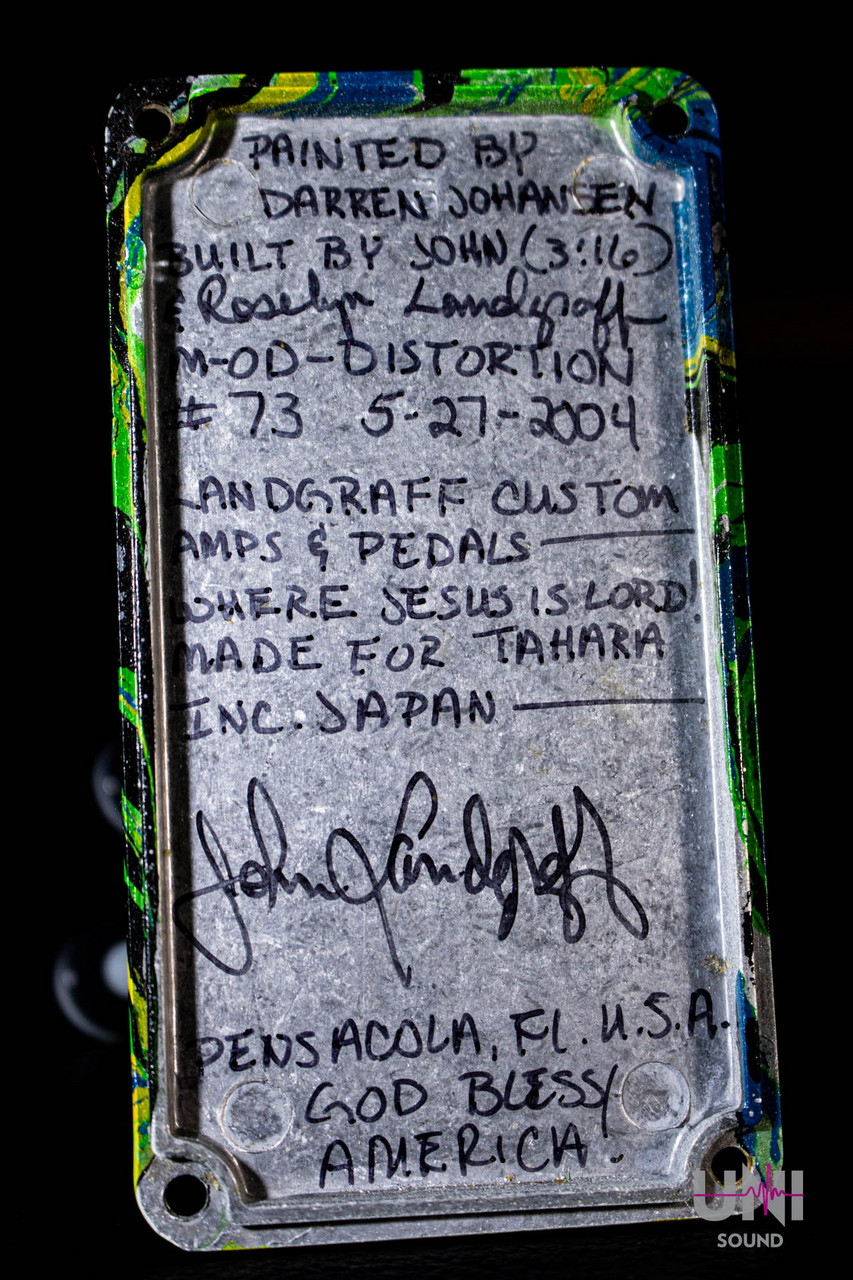 PAINTED BY
DARREN JOHANSEN
BUILT BY JOHN (3:16)
& Roselyn Landgraff
M-OD-DISTORTION
# 73 5-27-2004
LANDGRAFF CUSTOM
AMPS & PEDALS
WHERE JESUS IS LORD!
MADE FOR TAHARA
INC. JAPAN
John Landgraff
PENSACOLA, Fl. U.S.A.
GOD BLESS
AMERICA!
UNI
SOUND